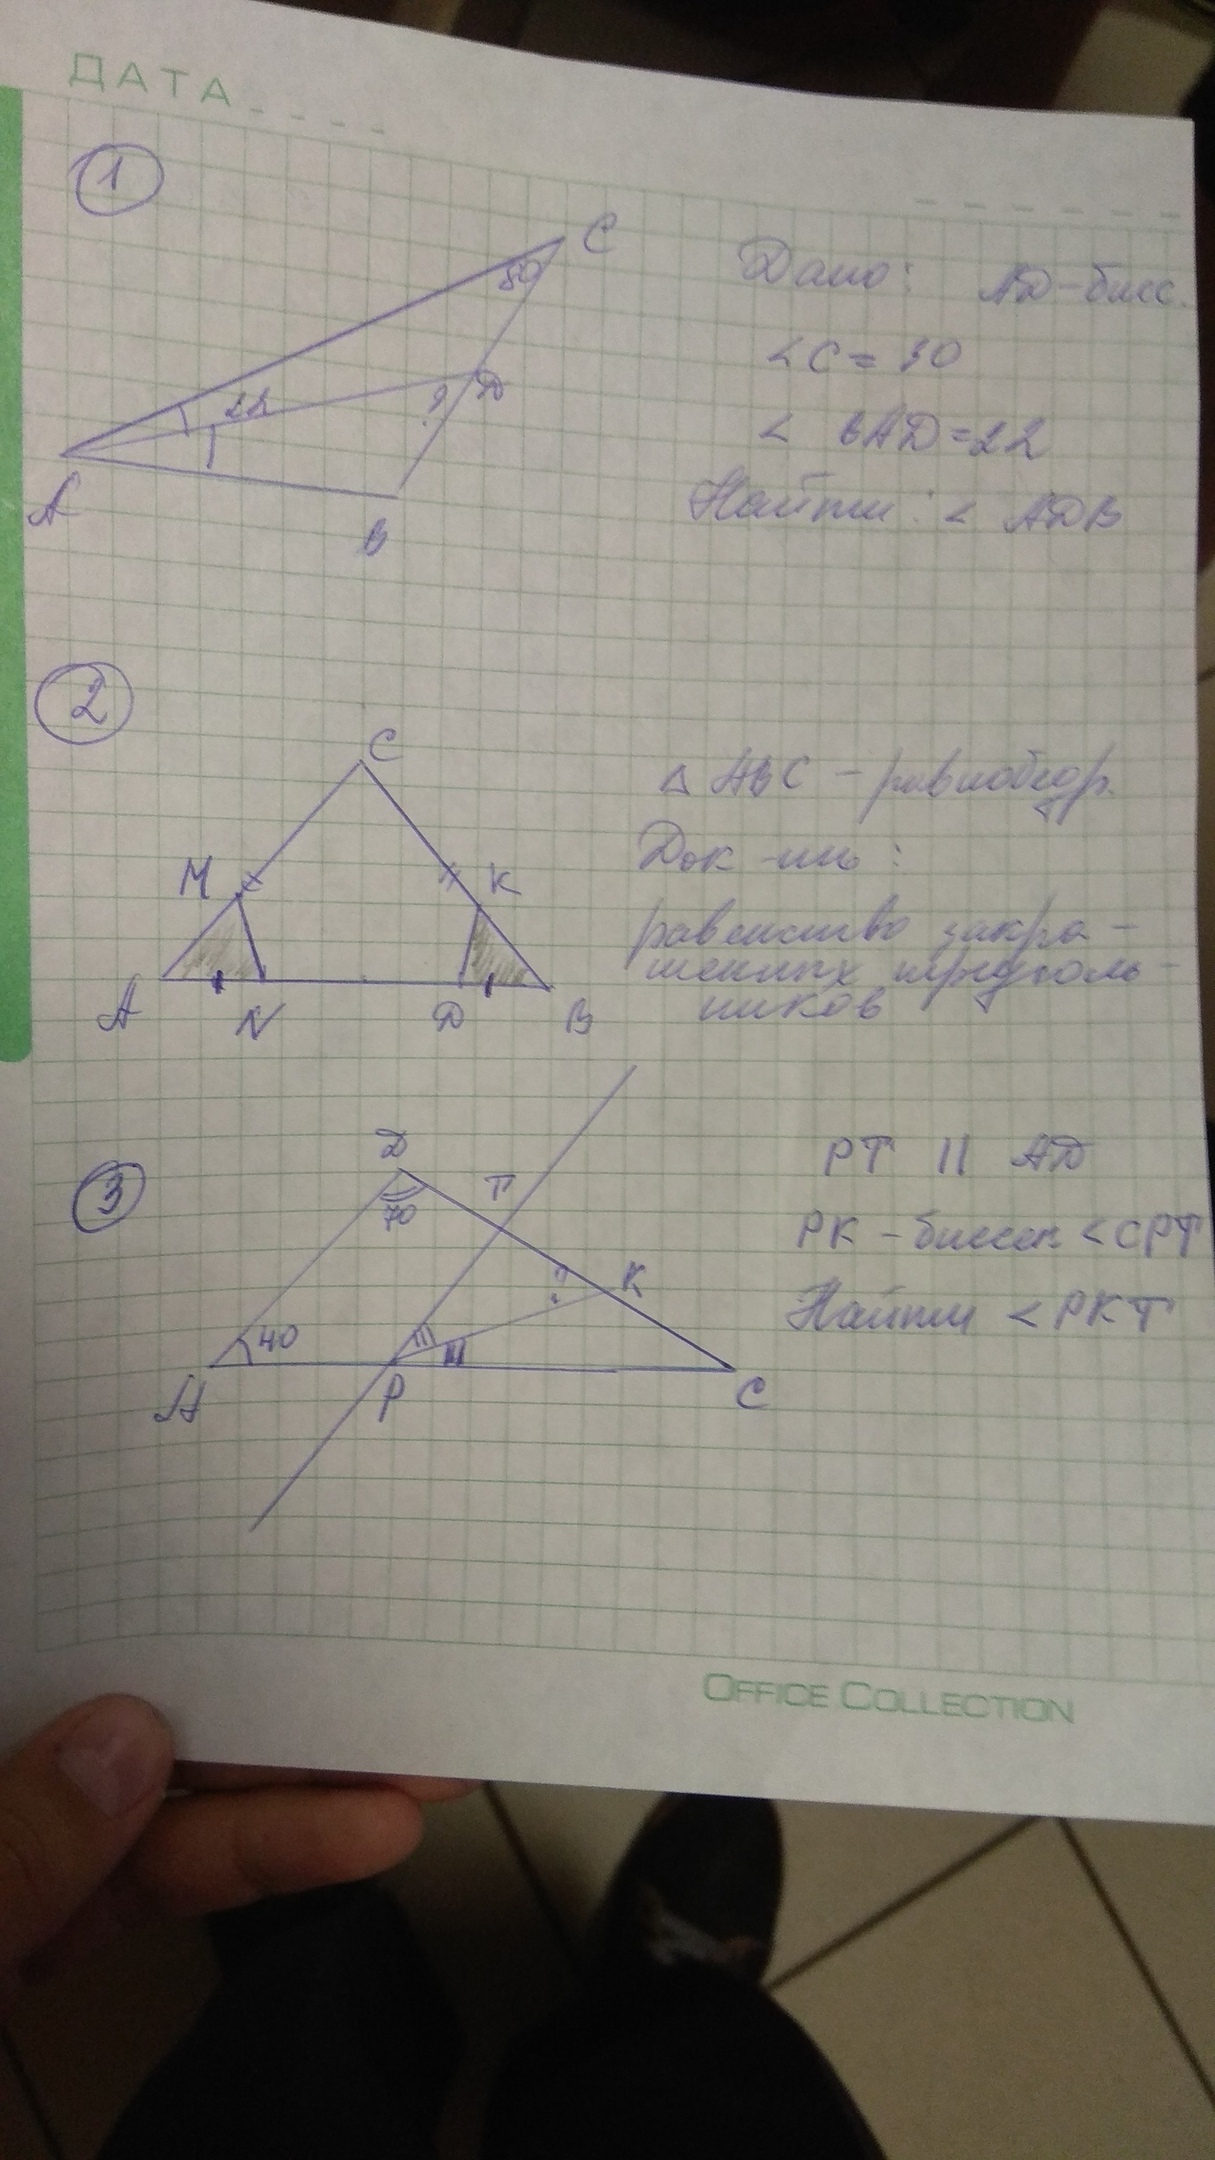 ДАТА
1
C
30
D
22
?
A
B
Дано: AD-бисс.
<C = 30
< BAD=22
Найти: < ADB
2
C
M
K
A
N
D
B
△ ABC – равнобедр.
Док-ть:
равенство закра-
шенных треуголь-
ников
3
D
70
T
?
K
40
A
P
C
PT || AD
PK – биссек <CPT
Найти <PKT
OFFICE COLLECTION